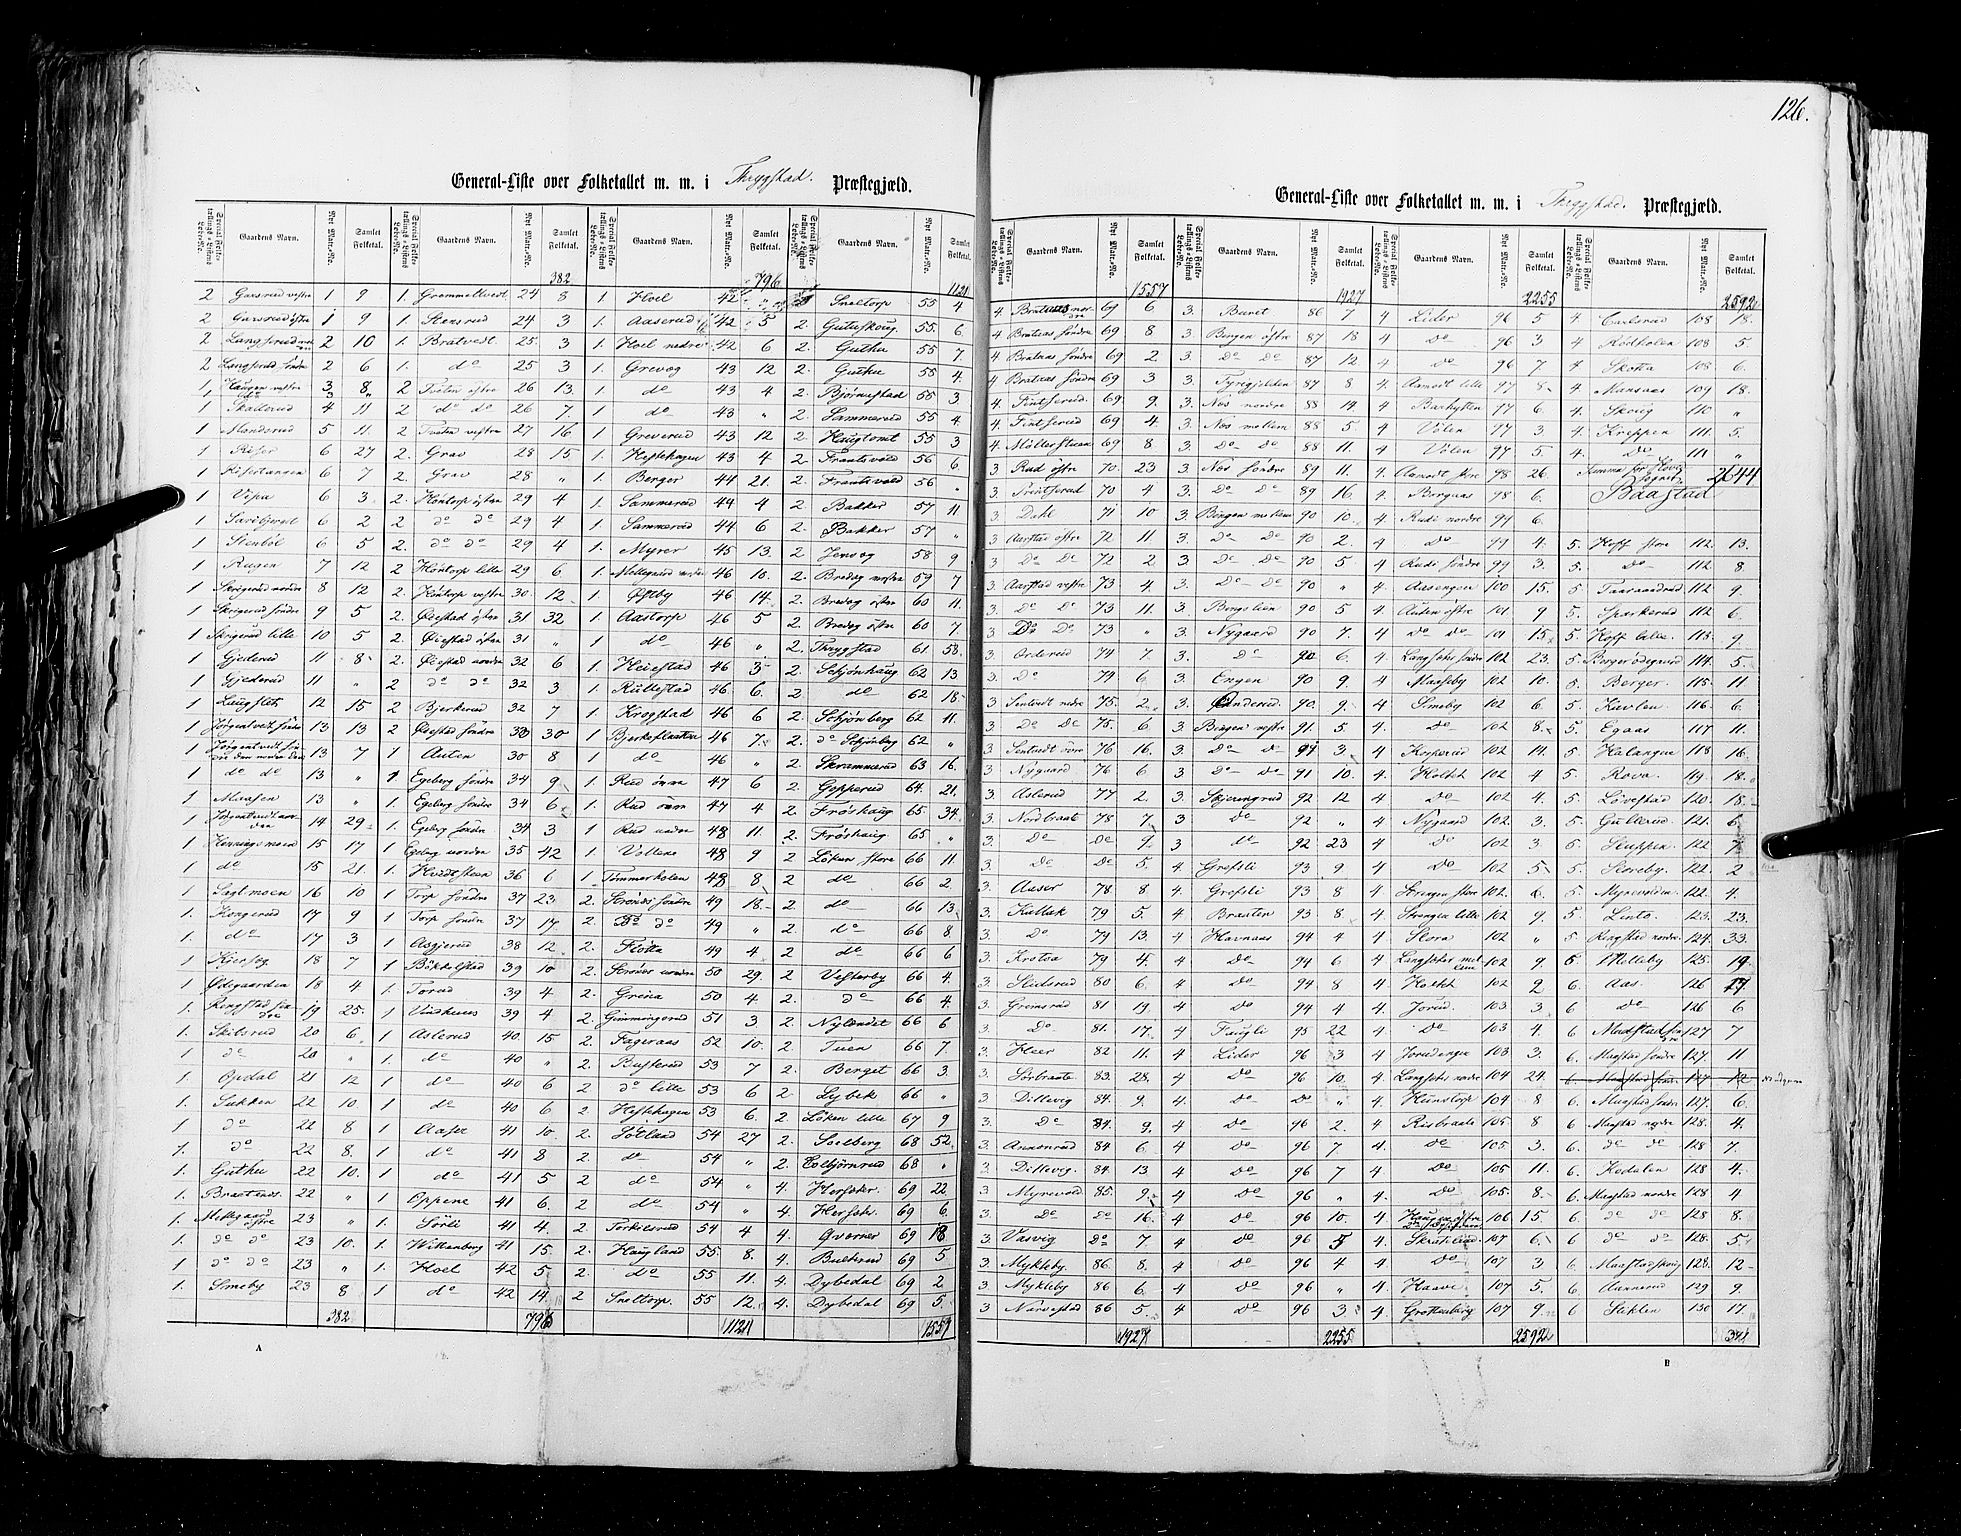 126.
General-Liste over Folketallet m. m. i Thrygstad. Præstegjæld.
Special Folketællings-Listens Løbe-No. Gaardens Navn. Nyt Matr.-No. Samlet Folketal.
382
2 Garsrud vestre 1 9
2 Garsrud østre 1 9
2 Langsrud 2 10
2 Langsrud søndre 2 6
1 Haugen vestre 3 8
1 Skallerud 4 11
1 Mandsrud 5 11
1 Riser 6 27
1 Risertangen 6 7
1 6 3
1 6 2
1 Stenbøl 6 5
1 7 12
1 Skrigerud nordre 8 12
1 Skrigerud søndre 9 5
1 Skrigerud lille 10 5
1 Gjederud 11 8
1 Gjederud 11 "
1 12 15
1 Jørgentvedt søndre 13 13
1 13 7
1 do do 13 "
1 Maasen 13 "
1 14 29
1 Henningsmoen 15 17
1 do 15 21
1. Sagtmoen 16 10
1. Kongerud 17 9
1. do 17 3
1. 18 7
1. Ødegaarden 18 4
1. 19 25
1. Skilsrud 20 6
1. do 20 "
1. Opdal 21 12
1. Sukken 22 10
1. do 22 8
1. do 22 8
1. Guthu 22 10
1. 22 "
1. Mellegaard østre 23 "
1. do do 23 10
1 do do 23 "
1. Smeby 23 8
382
1. 24 8
1. Stensrud 24 3
1. Bratvedt 25 3
1. do 25 3
2 Tveten østre 26 13
2 do do 26 7
2 Tveten vestre 27 16
2. Grav 28 15
2. Grav 28 "
2. Hontorp østre 29 4
2 do do 29 4
2. do do 29 4
2 Hontorp lille 29 6
2. Hontorp vestre 30 12
2. Øiestad østre 31 32
2. Øiestad østre 31 "
2. Øiestad nordre 32 6
2 do do 32 3
2 Bjerkerud 32 7
2 Øiestad søndre 30
1 Auten 30 8
1 Egeberg søndre 34 9
1. Egeberg søndre 34 6
1. Egeberg søndre 34 3
1 Egeberg nordre 35 42
1. Hvidtsteen 36 6
1 Torp søndre 37 23
1 Torp søndre 37 17
1 Asgjerud 38 12
1 Bøkkelstad 39 10
1. Torud 39 4
1 39 4
1 Aslerud 40 15
1. do 40 "
1 do 40 6
1 do 40 6
1 Aaser 41 10
1 do 41 8
1 do 41 5
1 Oppene 41 6
1. Sørli 41 4
1. Wittenberg 41 15
1. Hoel 42 5
1 do 42 14
796
796
1. Hoel 42
1. Aaserud 42 5
1. Hoel nedre 42 6
1. Grevog 43 12
1. do 43 4
1. do 43 "
1. Greverud 43 12
1. Hestehagen 43 4
1. Berger 44 21
1. Sammerud 44 4
1. Sammerud 44 6
1. Myrer 45 13
1. Mellegaard vestre 46 10
1. Østby 46 14
1. Aastorp 46 5
1. do 46 "
1. Heiestad 46 3
1. Rullestad 46 6
1. Krogstad 46 6
1. 46 7
1. do 46 "
1. Rud øvre 47 6
1. Rud øvre 47 4
1 Rud nedre 48 11
1 48 9
1 Tømmerholen 48 8
2. 49 18
2. do do 49 "
2. 49 4
2. 50 29
2. Grena 50 4
2. Gimmingsrud 51 3
2. Fageraas 52 10
2. Busterud 53 7
2. do lille 53 6
2. Hestehagen 53 6
2. Jøtland 54 27
2. do 54 "
2 do 54 "
2 do 54 "
2. Torkilsrud 54 4
2. Haugland 55 8
2. do 55 11
2 Sneltorp. 55 12
1121
1121
Sneltorp 55 4
2. Gutuskoug. 55 6
2. Guthu 55 7
2. Guthu 55 4
2. Bjørnestad 55 3
2. Sammerud 55 4
2. Haugtomt 55 3
2. Frantsvold 56 6
2. Frantsvold 56 "
2 Bakker 57 11
2. Bakker 57 "
2 Jensog 58 9
2. Bredag vestre 59 7
2. Bredag østre 60 11
2. Bredag østre 60 7
2. Thrygstad 61 58
2. Schjønhaug 62 13
2 do 62 18
2. Schjønberg 62 11
2. do Schjønberg 62 "
2 Skrammerud 63 16
2. Gopperud 64 21
2. Frøshaug 65 34
2. Frøshaug 65 "
2 Løken store 66 11
2 do 66 2
2 do 66 13
2. do 66 8
2 do 66 6
2 Vesterby 66 4
2. do 66 4
2. Nylændet 66 6
2. Tuen 66 7
2. Berget 66 3
2. Lybek 66 "
2. Løken lille 67 9
2. Soelberg 68 52
2. 68 "
4. Hersæter 69 22
4. Hersæter 69 6
4. Qværner 69 18
4. Bulterud 69 5
4. Dybedal 69 2
4. Dybedal 69 5
1557
A
General-Liste over Folketallet m. m. i Thrygstad. Præstegjæld.
Special Folketællings-Listens Løbe-No. Gaardens Navn. Nyt Matr.-No. Samlet Folketal.
1557
4. Bratnes nordre 69 6
4 Bratnes søndre 69 8
4 Bratnes søndre 69 2
4 Bratnes søndre 69 3
4. Fintserud 69 9
4. Fintserud 69 4
4. Møllerstuen 69 8
3 Rud østre 70 23
3. 70 4
3. Dahl 71 10
3. Aarstad østre 72 11
3. Do Do 72 2
3. Aarstad vestre 73 4
3. Do Do 73 11
3 Do Do 73 "
3. Arderud 74 7
3. Do 74 6
3. Sentvedt nedre 75 2
3. Do Do 75 6
3. Sentvedt øvre 76 16
3. Nygaard 76 6
3. Aslerud 77 2
3. Nordbraate 78 7
3. Do Do 9
3. Do Do 5
3. Aaser 78 8
3. Kullak 79 5
3. Do 79 13
3. Krotva 79 4
3. Slidsrud 80 6
3. Gremsrud 81 19
3. Do 81 17
3. Heer 82 11
3. Sørbraate 83 28
3. Dillevig 84 9
3. Do 84 9
3. Ananrud 84 6
3. Dillevig. 84 13
3. Myrevold 85 9
3. Do Do 16
3. Vasvig Do 7
3 Mykleby. 86 8
3 Mykleby 86 6
3 Narvestad 86 5
1927
1927
3. Buret 86 7
3. Bergen østre 87 18
3. Do Do 87 12
3. Tyrigjelden 87 8
3. Nos nordre 88 14
3. Nos mellem 88 5
3. Do Do 88 11
3. Nos søndre 89 11
3. Do Do 89 16
3. Bingen mellem 90 10
3. Do Do 90 2
3. Do Do 90 5
3. Do Do 90 "
3. Bingslien 90 5
3. Nygaard 90 7
3. Do 90 6
3. Engen 90 9
3. Onderud 90 9
3. Bingen vestre 91 5
3. Do Do 91 3
3 Do Do 91 10
3. Skjerengrud 92 12
3 Do 92 "
3 Do 92 23
4 Grefsli 93 9
4. Grefsli 93 8
4 Braaten 93 8
4. Havnaas 94 4
4 Do 94 6
4 Do 94 8
4 Do 94 4
4 Faugli 95 22
4 Lider 96 3
4 Do 96 10
4 Do Do "
4 Do 96 2
4 Do 96 7
4 Do 96 7
4 Do 96 "
4 Do 96 10
4 Do 96 5
4 Do 96 4
4 Do 96 "
4 Do 96 3
2255
2255
4 Lider 96 5
4 Do 96 3
4 Do 96 7
4. Aamodt lille 97 8
4 Barhytten 97 6
4 Volen 97 3
4 Volen 97 5
4. Aamodt store 98 26
4. Borgaas 98 6
4. Rudi nordre 99 6
4 Do 99 4
4 Rudi søndre 99 3
4 Aasengen 100 15
4 Auten østre 101 9
4 Do Do 101 15
4 Langsæter søndre 102 23
4 Maaseby 102 10
4 Smeby 102 6
4 Do 102 8
4 Korperud 102 14
4. Holtet 102 4
4 Do 102 4
4 Nygaard 102 3
4 Do 102 3
4 Do 102 5
4 Sørengen store 102 6
4 lille 102 9
4 Stora 102 "
4 Langsæter mellem 102 9
4 Holtet 102 2
4 Jorud. 103 3
4 Do 103 4
4 Jorudengen 103 3
4. Langsæter nordre 104 24
4. Hunstorp 104 8
4 Risbraate 105 8
4 Do 105 3
4. Do 105 11
4. Do 105 8
4. Haugen østre 106 15
4. 107 6
4. Do 107 3
4 Haave 107 5
4. Grottenberg 107 9
2592
2592
4 Carlsrud 108 18
4 Rødholen 108 5
4 Skotta 108 6
4 Monsaas 109 18
4. Skoug 110 "
4. Kreppen 111 5
4. Do 111 "
Summa for Hovedsognet 2644
Baastad
5. Hoff store 112 13
5. Do 112 8
5. Taaraadrud 112 9
5. Sparkerud 112 6
5. Hoff lille 113 9
5. Bergerødegaard 114 5
5. Berger 115 11
5. Kievlen 116 6
5. Egaas 117 11
5. Halangen 118 16
5. Rova 119 18
5. Løvestad 120 15
5. Gullerud 121 6
5. Stuppen 122 7
5. Storeby. 122 2
5. Myrevolden 122 4
5 Linto 123 23
5 Ringstad nordre 124 33
5. Melleby 125 19
6. Aas 126 17
6 Do 126 6
6 127 7
6. Maastad søndre 127 11
6. Maastad søndre 127 12
6. Maastad søndre 127 6
6. Maastad nordre 128 4
6. Do Do 128 7
6. Hedalen 128 4
6. Maastad nordre 128 4
6. Do Do 128 8
6 Do Do 128 5
6 Maastadskoug 128 12
6 Aannerud 129 9
6 Sieklen 130 17
341
B